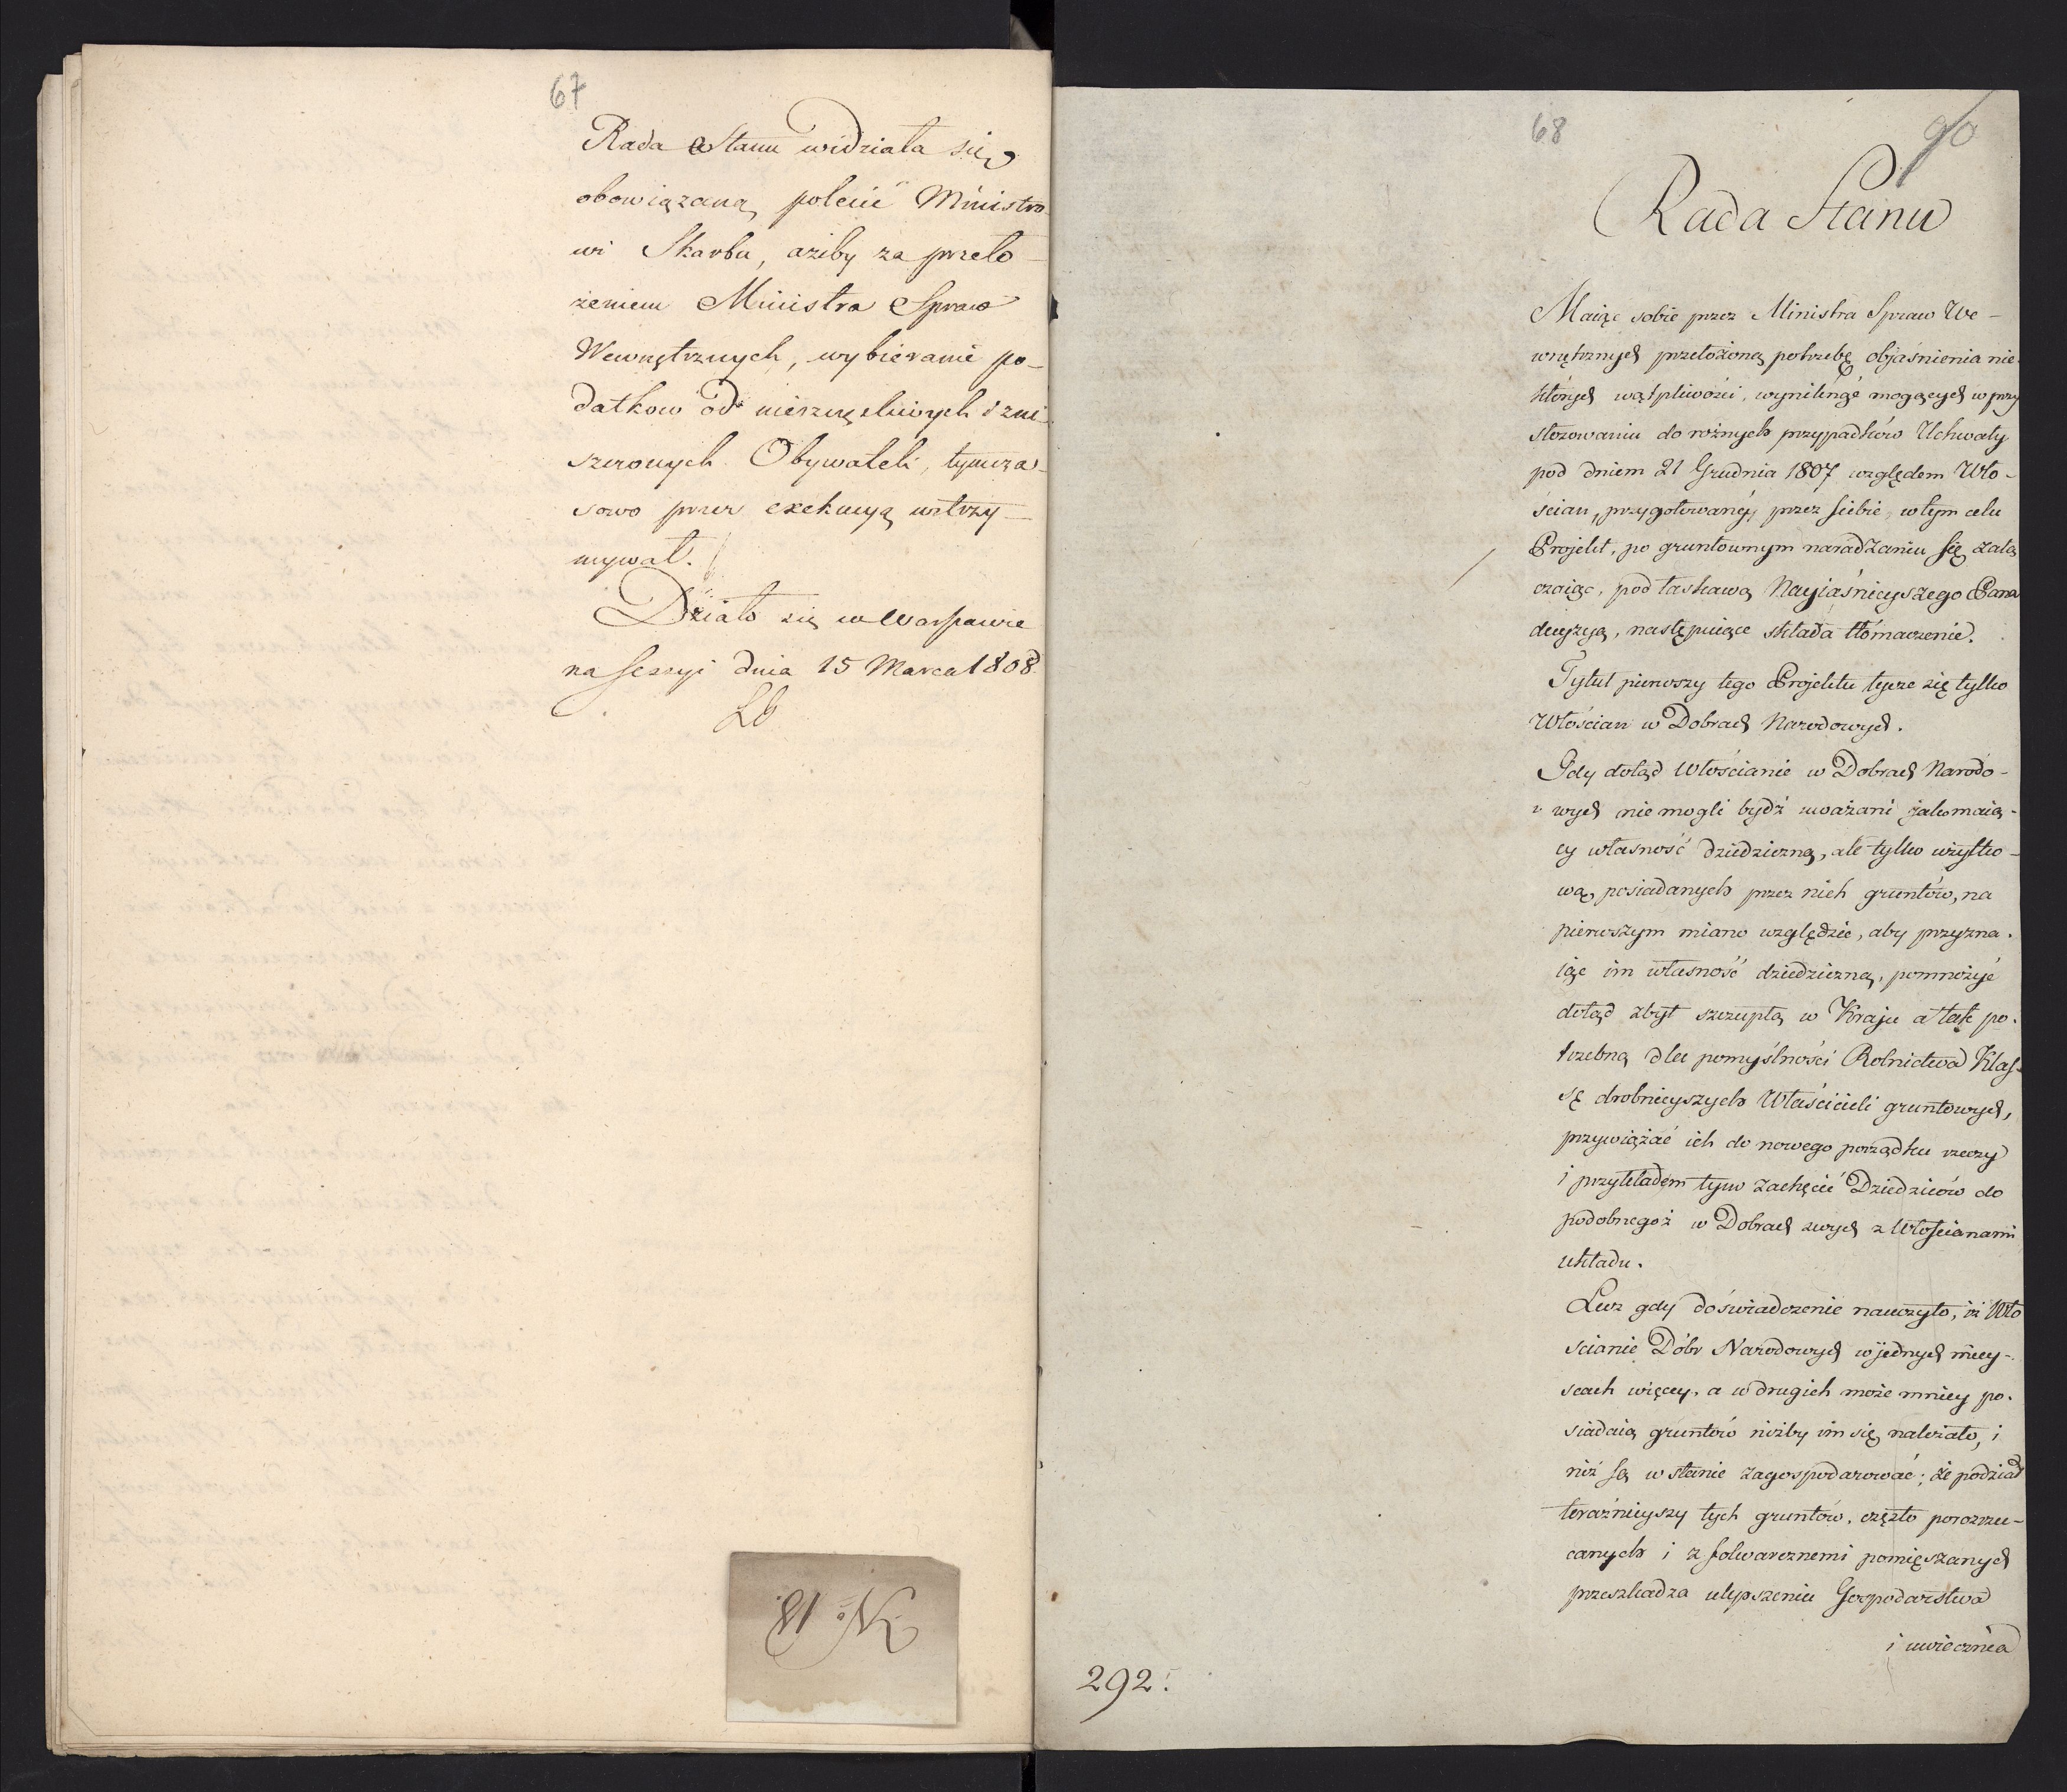 67
Rada Stanu widziała się
obowiązaną polecić Ministro-
wi Skarbu, ażiby za przeło-
żeniem Ministra Spraw
Wewnętrznych, wybieranie po-
datkow od nieszczęśliwych i zni-
szczonych Obywateli, tymcza-
sowo przez exekucyą wstrzy-
mywał.
Działo się w Warszawie
na Sessyi dnia 15 Marca 1808
No 18.
68
90
Rada Stanu
Maiąc sobie przez Ministra Spraw We-
wnętrznych przełożoną potrzebę objaśnienia nie-
których wątpliwości, wyniknąć mogących w przy
stosowaniu do rożnych przypadków Uchwały
pod dniem 21 Grudnia 1807 względem Wło-
ścian, przygotowany przez siebie w tym celu
Projekt, po gruntownym naradzaniu się załą
czaiąc, pod łaskawą Nayiaśnieyszego Pana
decyzyą, następuiące składa tłómaczenie.
Tytuł pierwszy tego Projektu tycze się tylko
Włościan w Dobrach Narodowych.
Gdy dotąd Włościanie w Dobrach Narodo-
wych nie mogli bydź uważani jako maią-
cy własność dziedziczną, ale tylko użytko-
wą, posiadanych przez nich gruntów, na
pierwszym miano względzie, aby przyzna-
iąc im własność dziedziczną, pomnożyć
dotąd zbyt szczupłą w Kraju a tak po-
trzebną dla pomyślności Rolnictwa Klas-
sę drobnieyszych Właścicieli gruntowych,
przywiązać ich do nowego porządku rzeczy
i przykładem tym zachęcić Dziedziców do
podobnegoż w Dobrach swych z Włościanami
układu.
Lecz gdy doświadczenie nauczyło, iż Wło
ścianie Dóbr Narodowych w jednych miey-
scach więcey, a w drugich może mniey po-
siadaią gruntów niżby im się należało, i
niż są w stanie zagospodarować; że podział
teraźnieyszy tych gruntów, często porozrzu-
canych i z folwarcznemi pomięszanych
przeszkadza ulepszeniu Gospodarstwa
i uwiecznia
292.